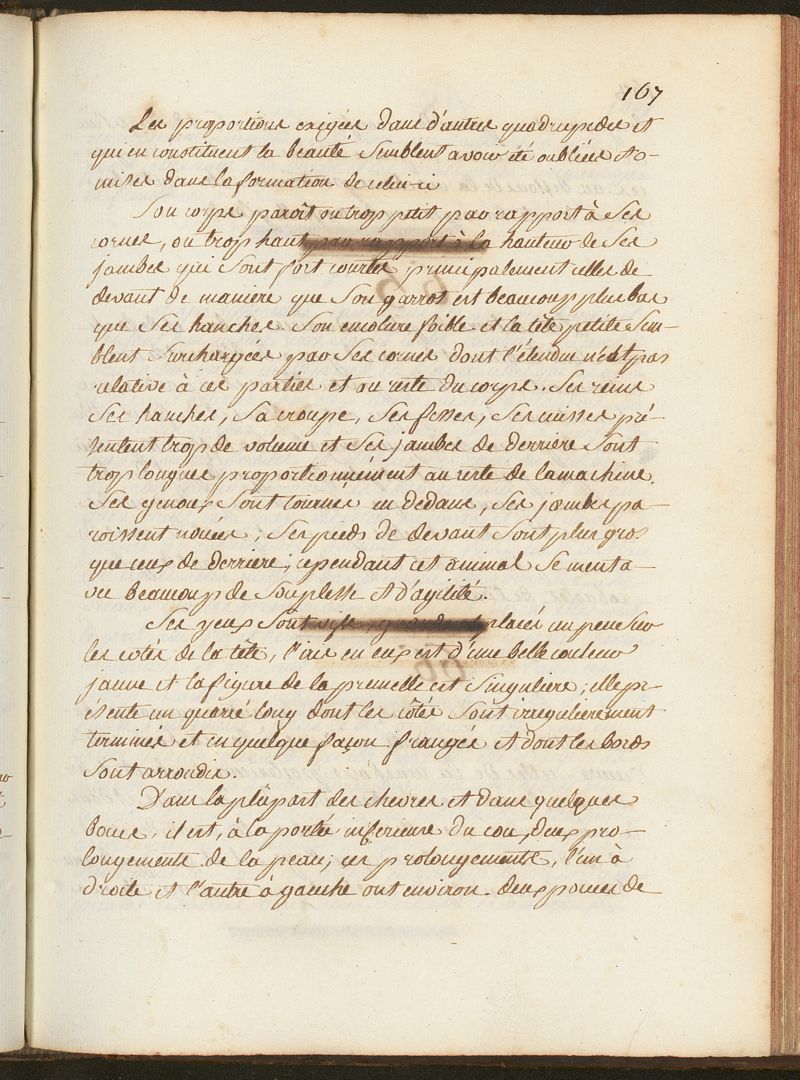 167
Les proportions exigées dans d'autres quadrupedes et
qui en constituent la beauté semblent avoir été oubliées et o-
mises dans la formation de celui-ci
Son corps paroît ou trop petit par rapport à ses
cornes, ou trop haut par rapport à la hauteur de ses
jambes qui sont fort courtes principalement celles de
devant de maniere que son garrot est beaucoup plus bas
que ses hanches. Son encolure foible et la tête petite sem-
blent surchargées par ses cornes dont l'étendue n'est pas
relative à ces parties et au reste du corps. Ses reins
ses hanches, sa croupe, ses fesses, ses cuisses pré-
sentent trop de volume et ses jambes de derriere sont
trop longues proportionnément au reste de la machine.
Ses genoux sont tournés en dedans, ses jambes pa-
roissent nouées; ses pieds de devant sont plus gros
que ceux de derriere; cependant cet animal se meut a-
vec beaucoup de souplesse et d'agilité.
Ses yeux sont vifs, grands et placés un peu sur
les cotés de la tête, l'iris en eux est d'une belle couleur
jaune et la figure de la prunelle est singuliere; elle pré-
sente un quarré long dont les côtés sont irregulierement
terminés et en quelque façon frangés et dont les bords
sont arrondis.
Dans la plûpart des chevres et dans quelques
boucs, il est, à la portée inferieure du cou, deux pro-
longements de la peau; ces prolongements, l'un à
droite et l'autre à gauche ont environ deux pouces de